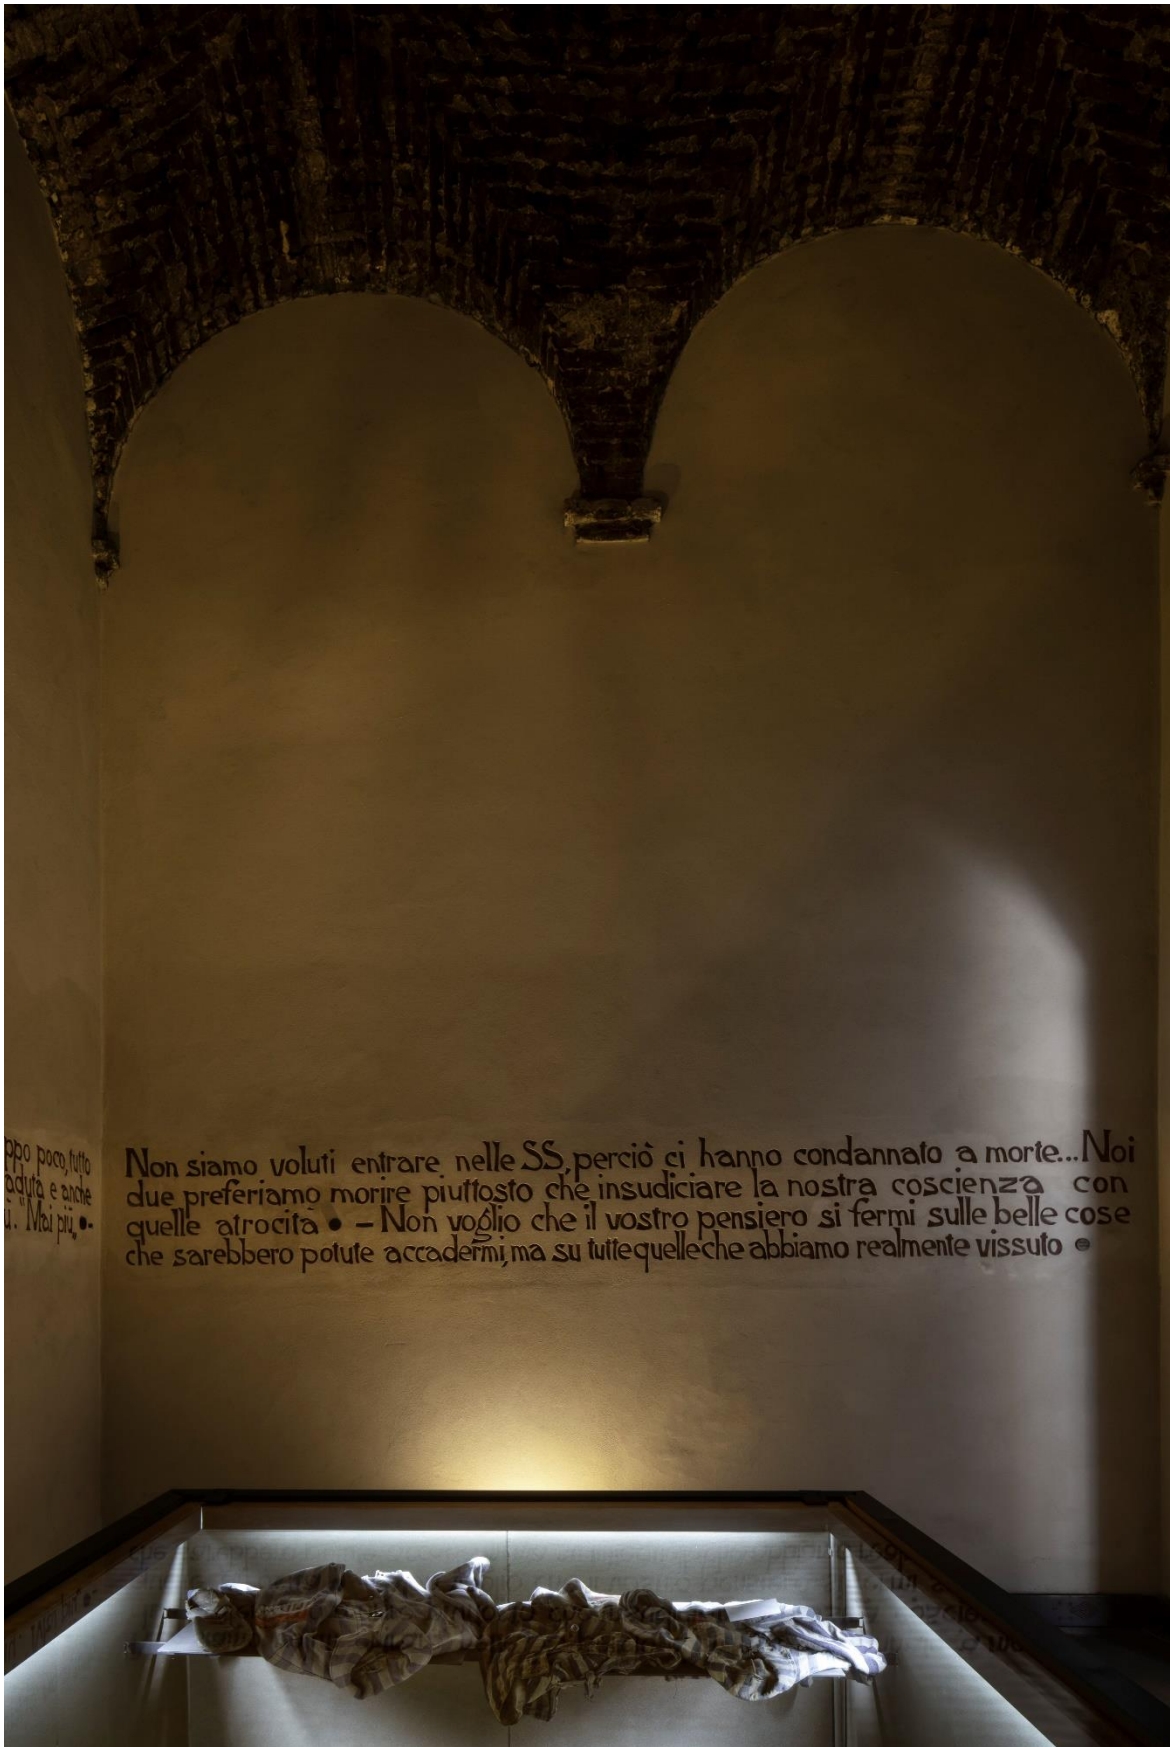 poco, tutto
e anche
"Mai più„ •-
Non siamo voluti entrare nelle SS, perciò ci hanno condannato a morte... Noi
due preferiamo morire piuttosto che insudiciare la nostra coscienza con
quelle atrocità • – Non voglio che il vostro pensiero si fermi sulle belle cose
che sarebbero potute accadermi, ma su tutte quelle che abbiamo realmente vissuto •